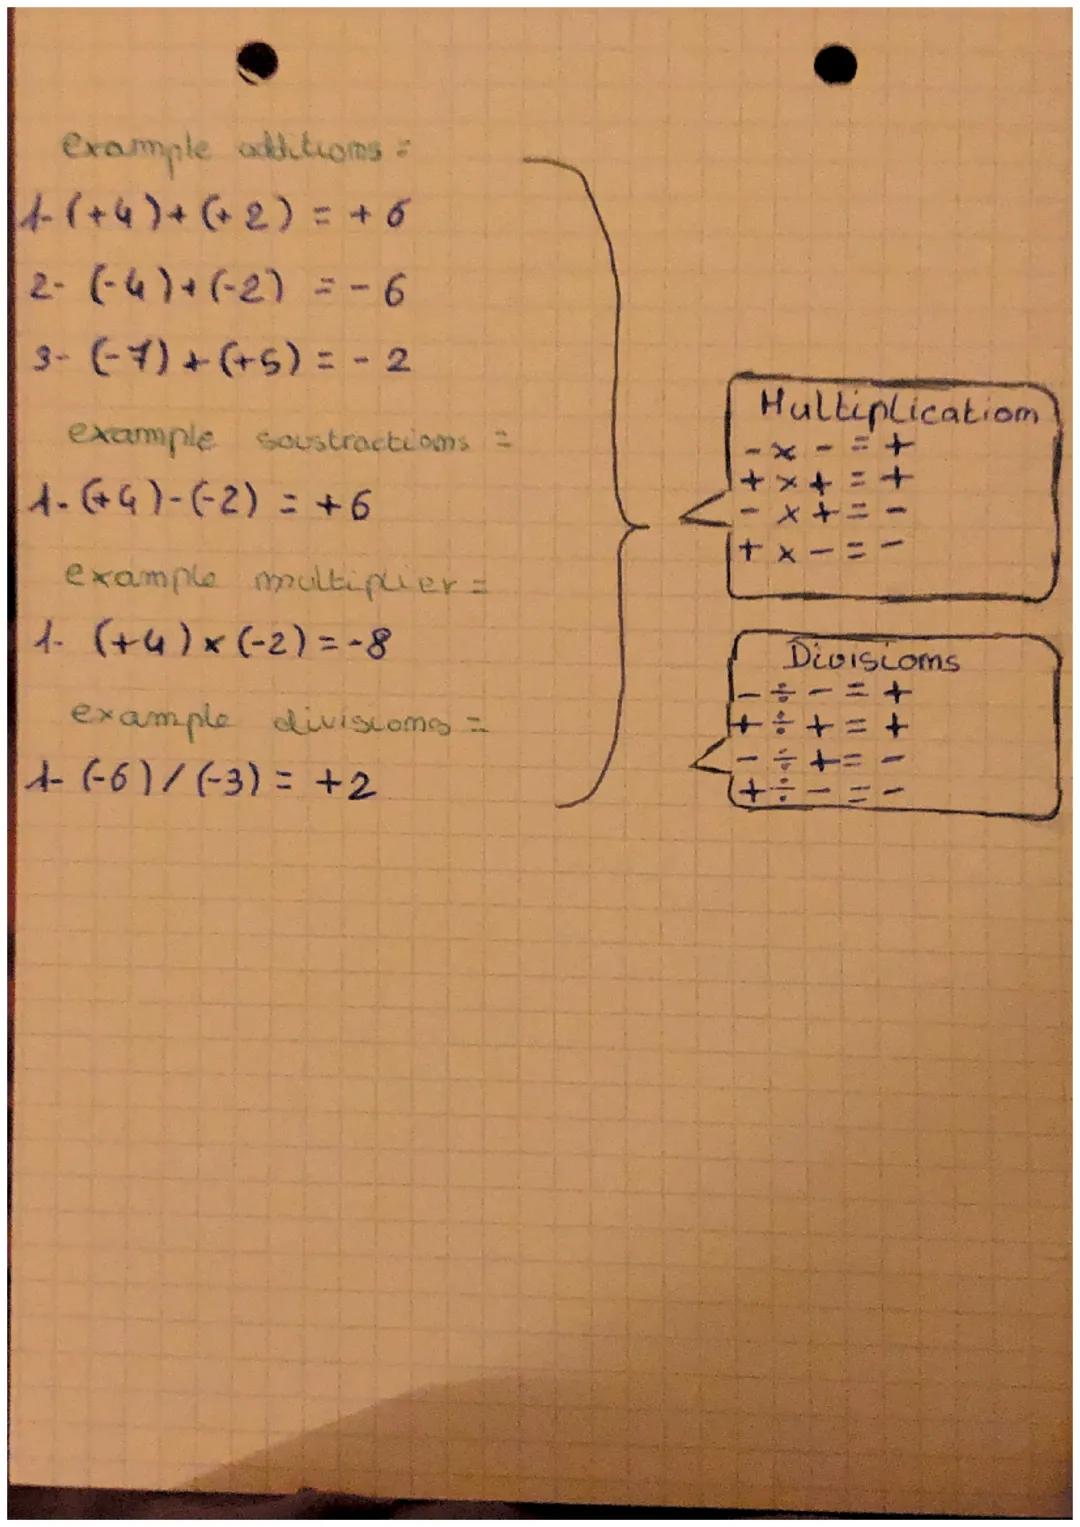 example additions =
1- (+4)+(+2) = +6
2- (-4)+(-2) = -6
3- (-7)+(+5) = -2
example soustractions =
1- (+4)-(-2) = +6
example multiplier =
1- (+4)×(-2) = -8
example divisions =
1- (-6)/(-3) = +2
Multiplication
- × - = +
+ × + = +
- × + = -
+ × - = -
Divisions
- ÷ - = +
+ ÷ + = +
- ÷ + = -
+ ÷ - = -